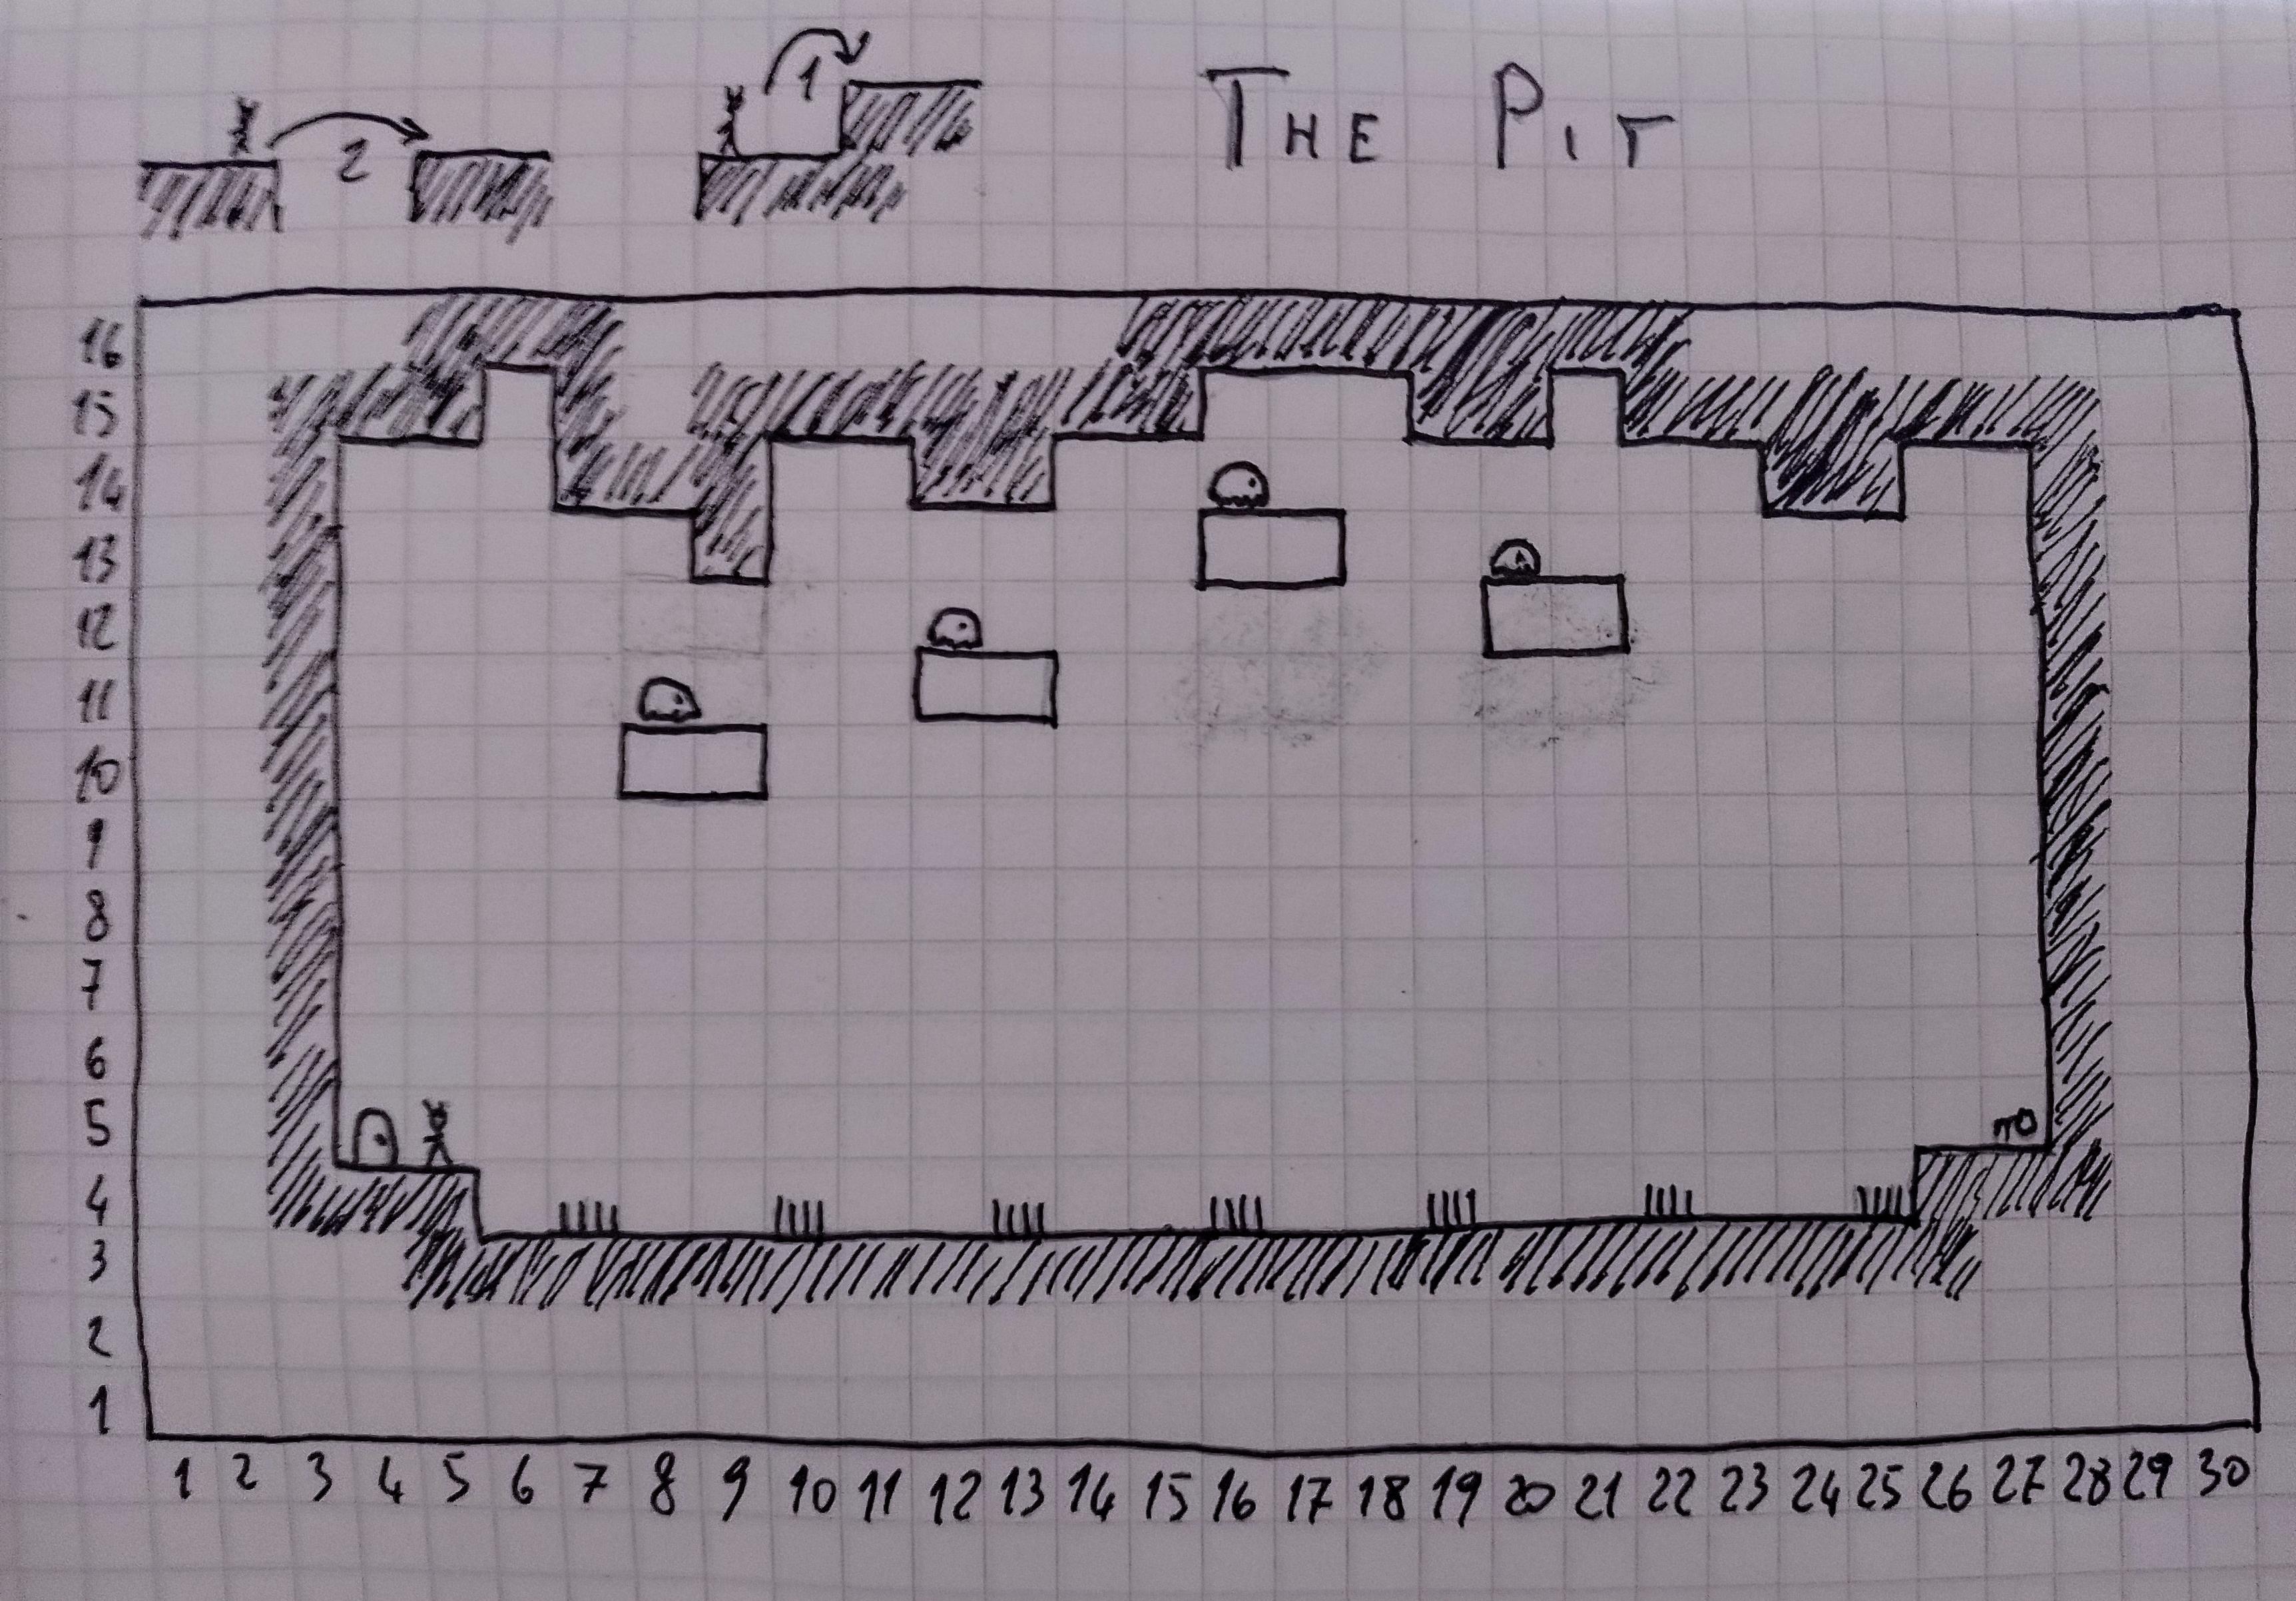 2
1
THE PIT
16
15
14
13
12
11
10
9
8
7
6
5
4
3
2
1
1 2 3 4 5 6 7 8 9 10 11 12 13 14 15 16 17 18 19 20 21 22 23 24 25 26 27 28 29 30